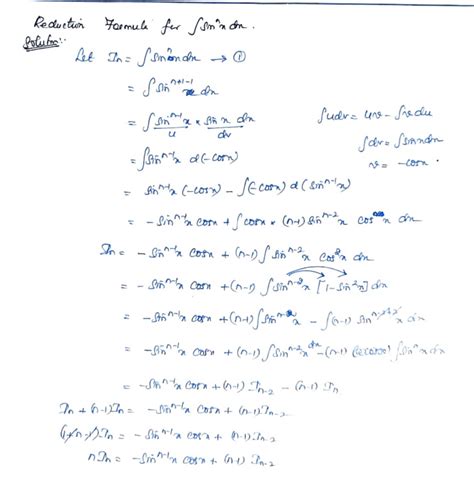 Reduction Formula for ∫sinⁿx dx.
Solution:-
Let Iₙ = ∫sinⁿx dx → ①
= ∫sinⁿ⁺¹⁻¹x dx
= ∫sinⁿ⁻¹x × sin x dx
u dv
∫udv = uv - ∫vdu
∫dv = ∫sinx dx
v = -cosx.
= ∫sinⁿ⁻¹x d(-cosx)
= sinⁿ⁻¹x (-cosx) - ∫(-cosx) d(sinⁿ⁻¹x)
= -sinⁿ⁻¹x cosx + ∫cosx × (n-1) sinⁿ⁻²x cosx dx
Iₙ = -sinⁿ⁻¹x cosx + (n-1) ∫sinⁿ⁻²x cos²x dx
= -sinⁿ⁻¹x cosx + (n-1) ∫sinⁿ⁻²x [1-sin²x] dx
= -sinⁿ⁻¹x cosx + (n-1) ∫sinⁿ⁻²x - ∫(n-1) sinⁿ⁻²⁺²x dx
= -sinⁿ⁻¹x cosx + (n-1) ∫sinⁿ⁻²x dx - (n-1) ∫sinⁿx dx
= -sinⁿ⁻¹x cosx + (n-1) Iₙ₋₂ - (n-1) Iₙ
Iₙ + (n-1)Iₙ = -sinⁿ⁻¹x cosx + (n-1) Iₙ₋₂
(1+n-1)Iₙ = -sinⁿ⁻¹x cosx + (n-1) Iₙ₋₂
nIₙ = -sinⁿ⁻¹x cosx + (n-1) Iₙ₋₂